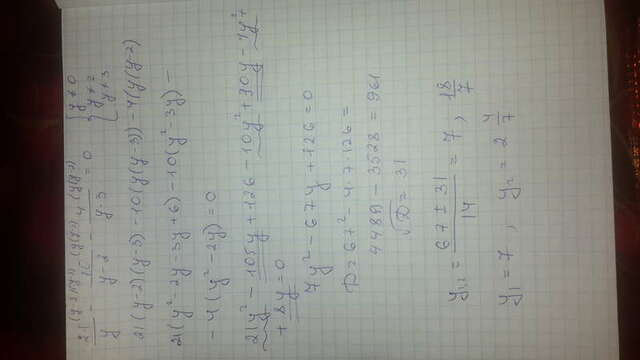 21(y-2)(y-3)/y - 10(y(y-3))/y-2 - 4(y(y-2))/y-3 = 0 { y≠0 y≠2 y≠3
21(y-2)(y-3)-10(y(y-3))-4(y(y-2)
21(y²-2y-3y+6)-10(y²-3y)-
-4(y²-2y)=0
21y²-105y+126-10y²+30y-4y²+
+8y=0
7y²-67y+126=0
D=67²-4·7·126=
4489-3528=961
√D=31
y₁,₂ = 67±31/14 = 7, 18/7
y₁=7, y₂=2 4/7